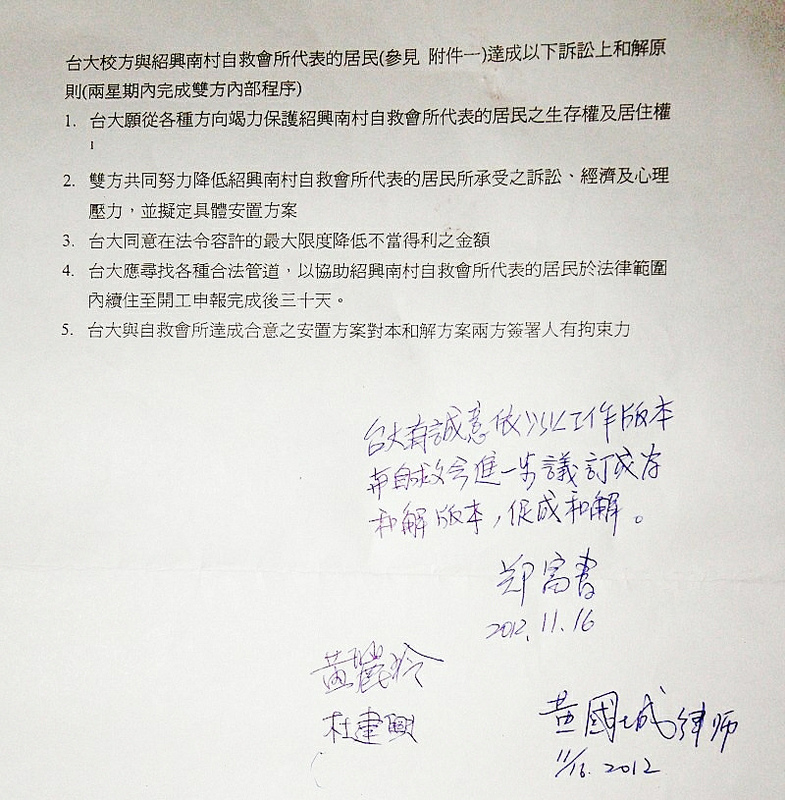 台大校方與紹興南村自救會所代表的居民(參見 附件一)達成以下訴訟上和解原
則(兩星期內完成雙方內部程序)
1. 台大願從各種方向竭力保護紹興南村自救會所代表的居民之生存權及居住權
2. 雙方共同努力降低紹興南村自救會所代表的居民所承受之訴訟、經濟及心理
壓力，並擬定具體安置方案
3. 台大同意在法令容許的最大限度降低不當得利之金額
4. 台大應尋找各種合法管道，以協助紹興南村自救會所代表的居民於法律範圍
內續住至開工申報完成後三十天。
5. 台大與自救會所達成合意之安置方案對本和解方案兩方簽署人有拘束力
台大有誠意依以上工作版本
與自救会進一步議訂成為
和解版本，促成和解。
鄭富書
2012.11.16
黃麗玲
杜建興
黃國城律師
11/16. 2012